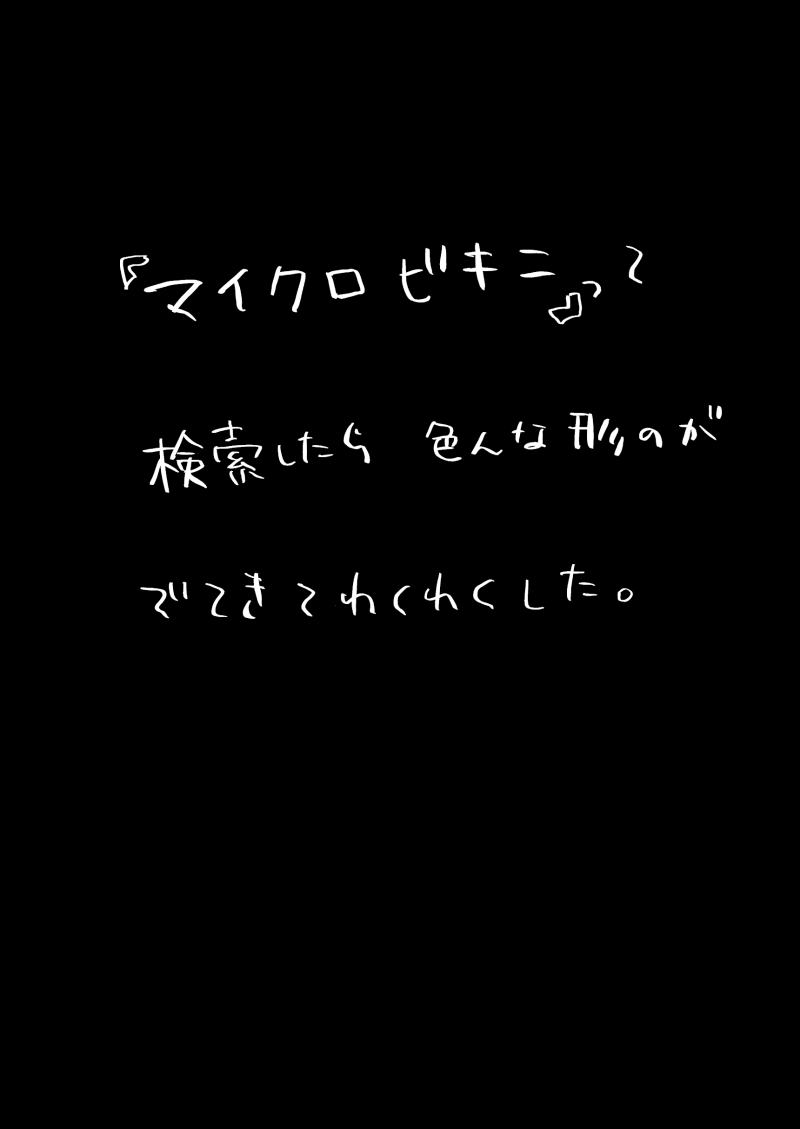 『マイクロビキニ』って
検索したら 色んな形のが
でてきてわくわくした。